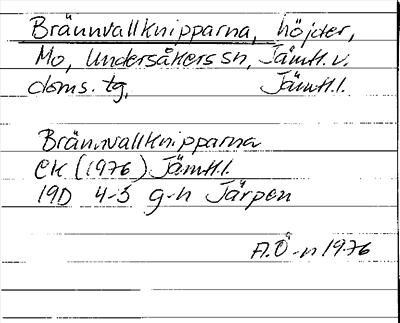 Brännvallknipparna, höjder,
Mo, Undersåkers sn, Jämtl. v.
doms. tg, Jämtl. l.
Brännvallknipparna
EK (1976) Jämtl. l.
19D 4-5 g-h Järpen
A.Ö-n 1976